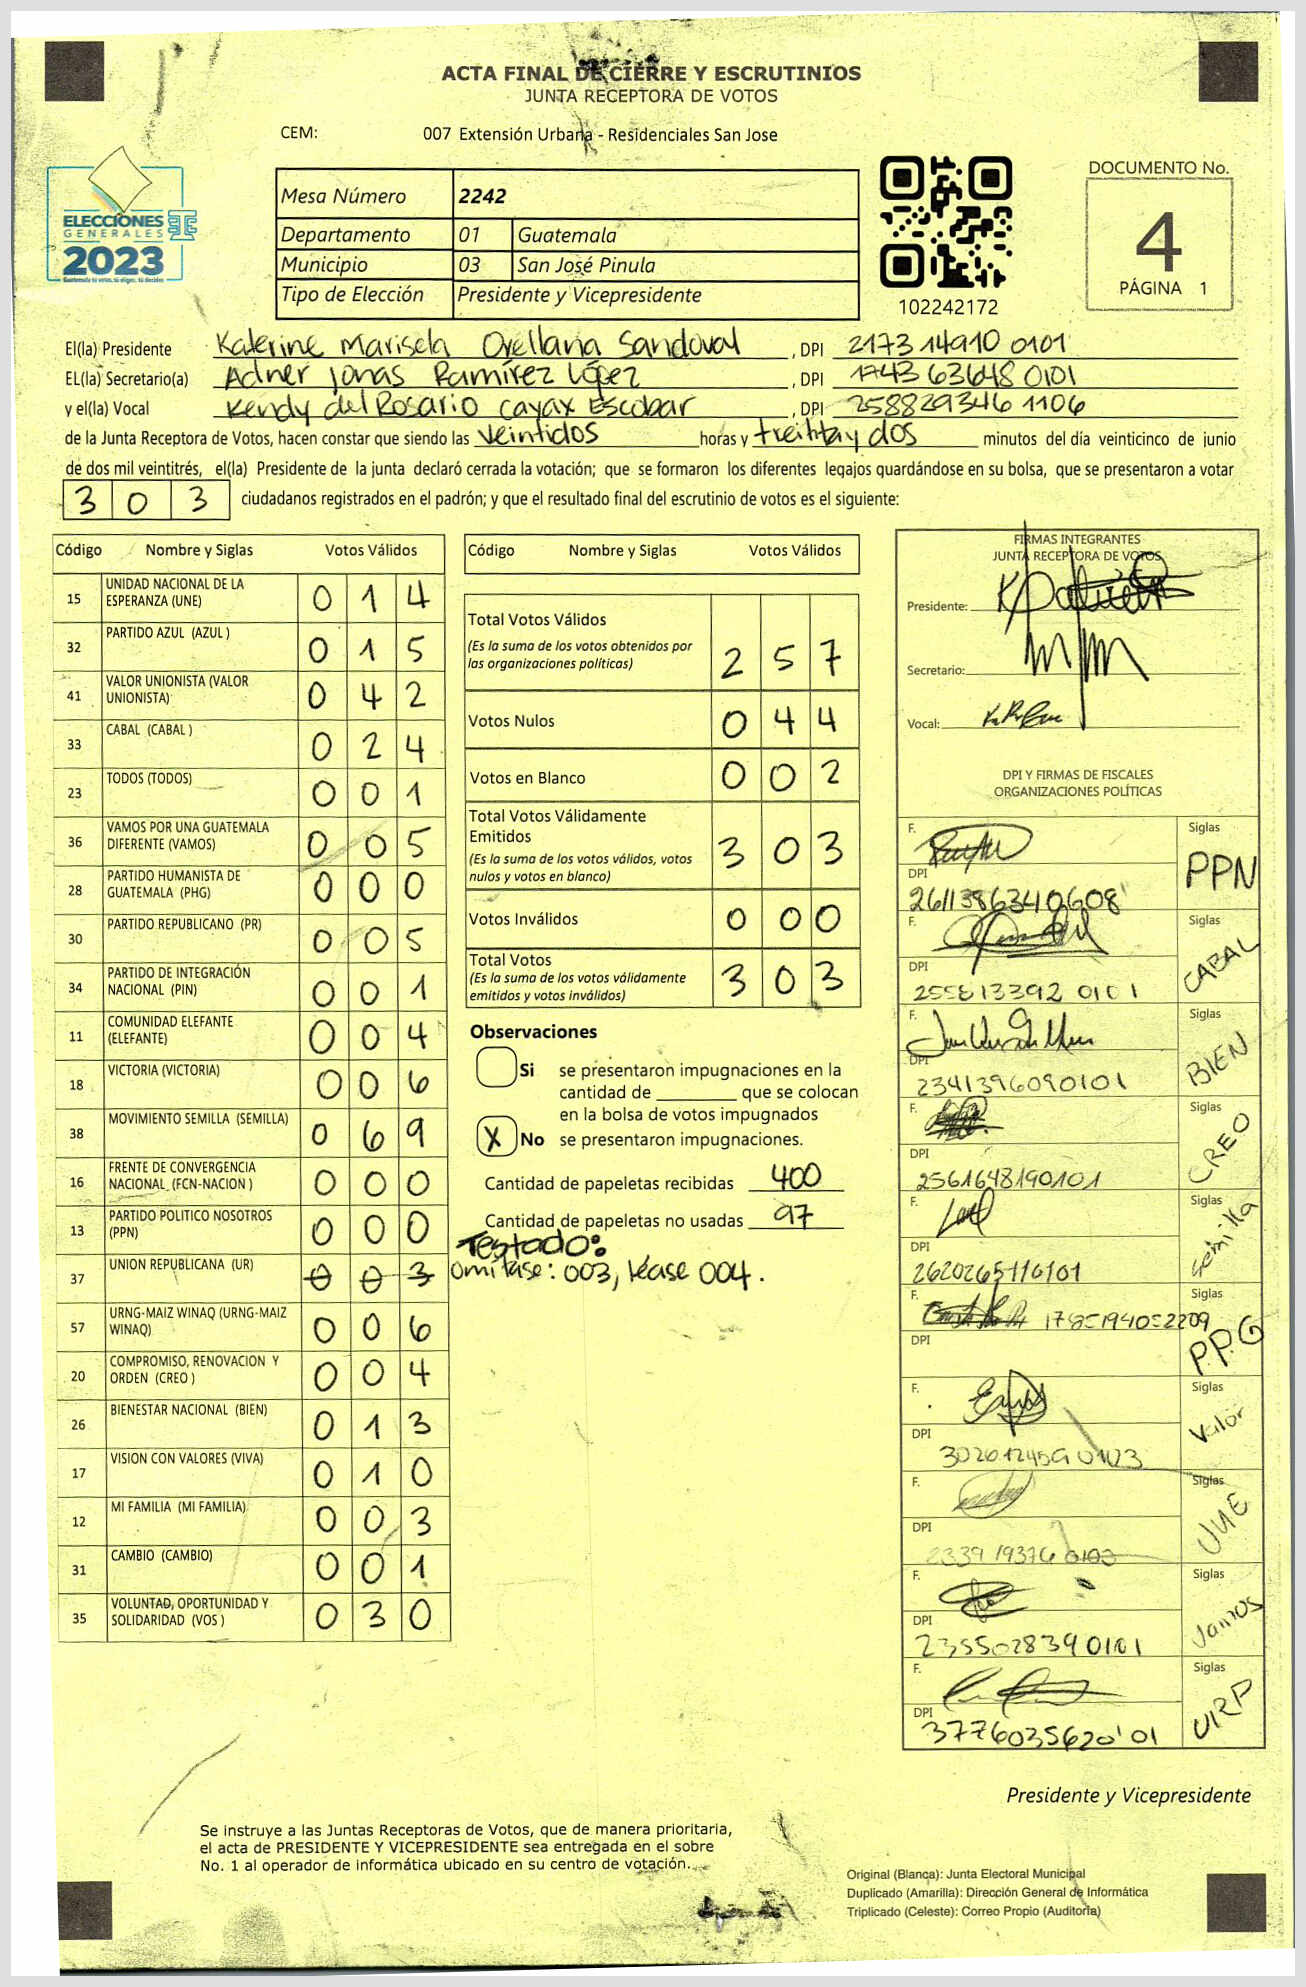 ACTA FINAL DE CIERRE Y ESCRUTINIOS
JUNTA RECEPTORA DE VOTOS
CEM: 007 Extensión Urbana - Residenciales San Jose
ELECCIONES
GENERALES
2023
Mesa Número 2242
Departamento 01 Guatemala
Municipio 03 San José Pinula
Tipo de Elección Presidente y Vicepresidente
102242172
DOCUMENTO No.
4
PÁGINA 1
El(la) Presidente Katerine Marisela Orellana Sandoval , DPI 2173 14910 0101
EL(la) Secretario(a) Adner Jonas Ramírez López , DPI 1743 63648 0101
y el(la) Vocal Kendy del Rosario Cayax Escobar , DPI 258829346 1106
de la Junta Receptora de Votos, hacen constar que siendo las veintidos horas y treinta y dos minutos del día veinticinco de junio
de dos mil veintitrés, el(la) Presidente de la junta declaró cerrada la votación; que se formaron los diferentes legajos guardándose en su bolsa, que se presentaron a votar
3 0 3 ciudadanos registrados en el padrón; y que el resultado final del escrutinio de votos es el siguiente:
Código Nombre y Siglas Votos Válidos
15 UNIDAD NACIONAL DE LA ESPERANZA (UNE) 0 1 4
32 PARTIDO AZUL (AZUL ) 0 1 5
41 VALOR UNIONISTA (VALOR UNIONISTA) 0 4 2
33 CABAL (CABAL ) 0 2 4
23 TODOS (TODOS) 0 0 1
36 VAMOS POR UNA GUATEMALA DIFERENTE (VAMOS) 0 0 5
28 PARTIDO HUMANISTA DE GUATEMALA (PHG) 0 0 0
30 PARTIDO REPUBLICANO (PR) 0 0 5
34 PARTIDO DE INTEGRACIÓN NACIONAL (PIN) 0 0 1
11 COMUNIDAD ELEFANTE (ELEFANTE) 0 0 4
18 VICTORIA (VICTORIA) 0 0 6
38 MOVIMIENTO SEMILLA (SEMILLA) 0 6 9
16 FRENTE DE CONVERGENCIA NACIONAL (FCN-NACION ) 0 0 0
13 PARTIDO POLITICO NOSOTROS (PPN) 0 0 0
37 UNION REPUBLICANA (UR) 0 0 3
57 URNG-MAIZ WINAQ (URNG-MAIZ WINAQ) 0 0 6
20 COMPROMISO, RENOVACION Y ORDEN (CREO ) 0 0 4
26 BIENESTAR NACIONAL (BIEN) 0 1 3
17 VISION CON VALORES (VIVA) 0 1 0
12 MI FAMILIA (MI FAMILIA) 0 0 3
31 CAMBIO (CAMBIO) 0 0 1
35 VOLUNTAD, OPORTUNIDAD Y SOLIDARIDAD (VOS ) 0 3 0
Código Nombre y Siglas Votos Válidos
Total Votos Válidos
(Es la suma de los votos obtenidos por
las organizaciones políticas) 2 5 7
Votos Nulos 0 4 4
Votos en Blanco 0 0 2
Total Votos Válidamente
Emitidos
(Es la suma de los votos válidos, votos
nulos y votos en blanco) 3 0 3
Votos Inválidos 0 0 0
Total Votos
(Es la suma de los votos válidamente
emitidos y votos inválidos) 3 0 3
Observaciones
Si se presentaron impugnaciones en la
cantidad de que se colocan
en la bolsa de votos impugnados
X No se presentaron impugnaciones.
Cantidad de papeletas recibidas 400
Cantidad de papeletas no usadas 97
Testado:
Omitase: 003, léase 004.
FIRMAS INTEGRANTES
JUNTA RECEPTORA DE VOTOS
Presidente:
Secretario:
Vocal:
DPI Y FIRMAS DE FISCALES
ORGANIZACIONES POLÍTICAS
F. Siglas PPN
DPI 2611386340608
F. Siglas CABAL
DPI 255813392 0101
F. Siglas BIEN
DPI 2341396090101
F. Siglas CREO
DPI 2561648190101
F. Siglas Semilla
DPI
F. Siglas P.P.G
DPI
F. Siglas Valor
DPI
F. Siglas UNE
DPI
F. Siglas Vamos
DPI 2355028390101
F. Siglas
DPI
Presidente y Vicepresidente
Se instruye a las Juntas Receptoras de Votos, que de manera prioritaria,
el acta de PRESIDENTE Y VICEPRESIDENTE sea entregada en el sobre
No. 1 al operador de informática ubicado en su centro de votación.
Original (Blanca): Junta Electoral Municipal
Duplicado (Amarilla): Dirección General de Informática
Triplicado (Celeste): Correo Propio (Auditoría)